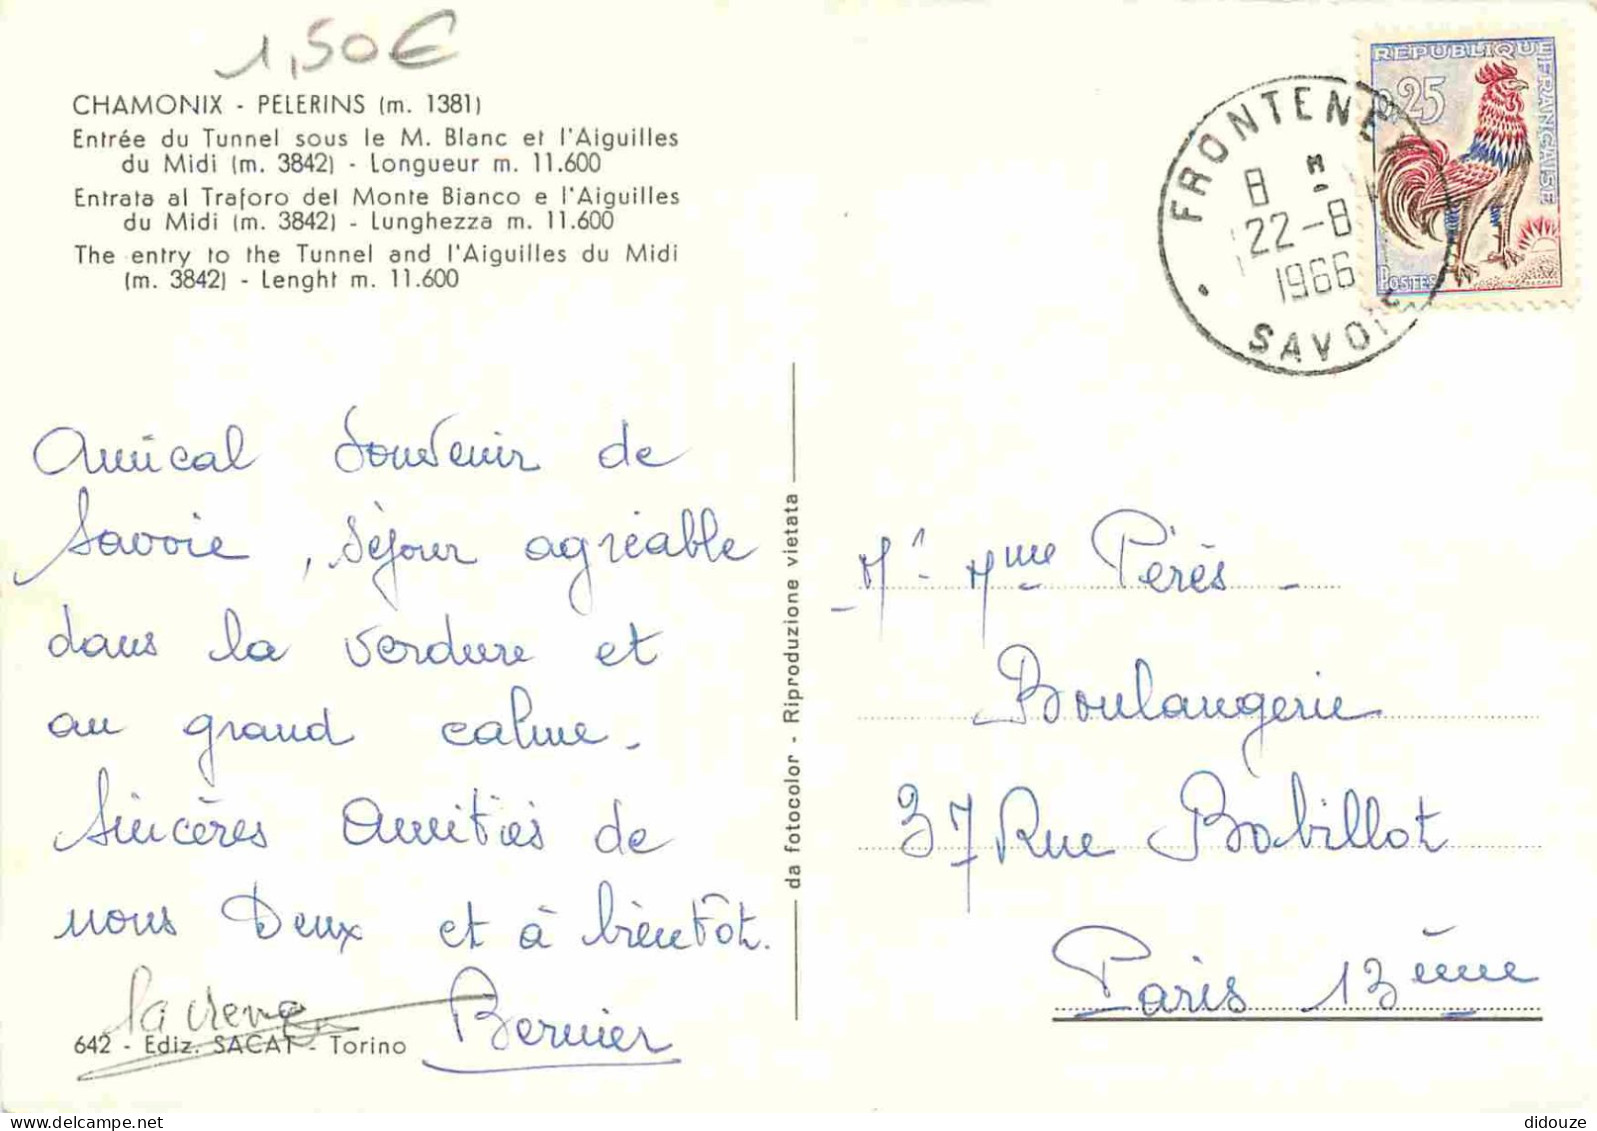 1,50€
CHAMONIX - PELERINS (m. 1381)
Entrée du Tunnel sous le M. Blanc et l'Aiguilles
du Midi (m. 3842) - Longueur m. 11.600
Entrata al Traforo del Monte Bianco e l'Aiguilles
du Midi (m. 3842) - Lunghezza m. 11.600
The entry to the Tunnel and l'Aiguilles du Midi
(m. 3842) - Lenght m. 11.600
REPUBLIQUE FRANÇAISE
0,25
POSTES
FRONTENEX
8 H.
22-8
1966
SAVOIE
Amical Souvenir de
Savoie, séjour agréable
dans la verdure et
au grand calme.
Sincères Amitiés de
nous Deux et à bientôt.
Bernier
642 - Ediz. SACAT - Torino
da fotocolor - Riproduzione vietata
Mr Mme Pérès
Boulangerie
37 Rue Bobillot
Paris 13ème
didouze @ delcampe.net